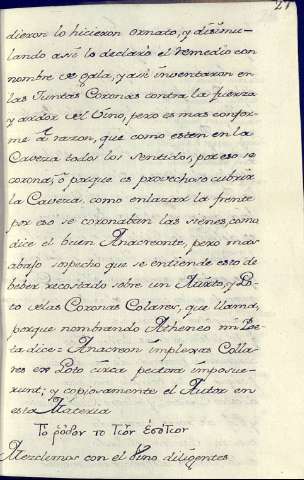 27
dieron lo hicieron ornato, y disimu-
lando assi lo declaró el remedio con
nombre de gala, y asi inventaran en
las Juntas Coronas contra la fuerza
y ardor del Vino, pero es mas confor-
me á razon, que como esten en la
Caveza todos los sentidos, por eso se
corona; ó porque es provechoso cubrir
la Caveza, como enlazar la frente
por eso se coronaban las sienes, como
dice el buen Anacreonte, pero mas
abajo sospecho que se entiende esto de
beber recostado sobre un Mirto, y Lo-
to de las Coronas Colares, que llama,
porque nombrando Atheneo mi Poe-
ta dice: Anacreon implexas Colla-
res ex Loto circa pectora imposue-
runt; y copiosamente el Autor en
esta Materia
Το ρόδον το τῶν ἐρώτων
Mezclemos con el Vino diligentes